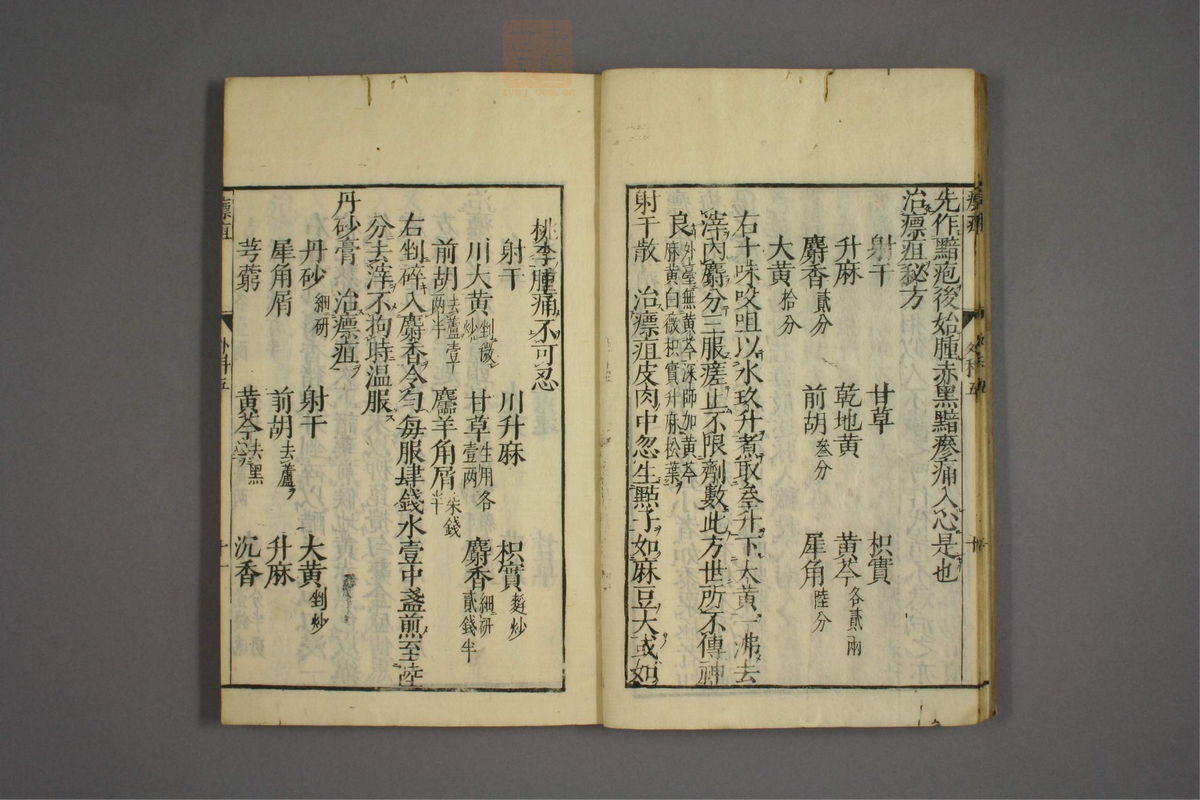 先作黯疱後始腫赤黑黯瘮痛入心是也
治瘭疽秘方
射干 甘草 枳實
升麻 乾地黄 黄芩各貳兩
麝香貳分 前胡叁分 犀角陸分
大黄拾分
右十味㕮咀以水玖升煮取叁升下大黄一沸去
滓内麝分三服瘥止不限劑數此方世所不傳神
良外臺無黄芩深師加黄芩麻黄白薇枳實升麻松葉
射干散 治瘭疽皮肉中忽生㸃子如麻豆大或如
桃李腫痛不可忍
射干 川升麻 枳實麫炒
川大黄剉微炒 甘草生用各壹兩 麝香細研貳錢半
前胡去蘆壹兩半 麢羊角屑柒錢半
右剉碎入麝香令匀每服肆錢水壹中盞煎至陸
分去滓不拘時温服
丹砂膏 治瘭疽
丹砂細研 射干 大黄剉炒
犀角屑 前胡去蘆 升麻
芎藭 黄芩去黑心 沉香
瘭疽 外科五 十一